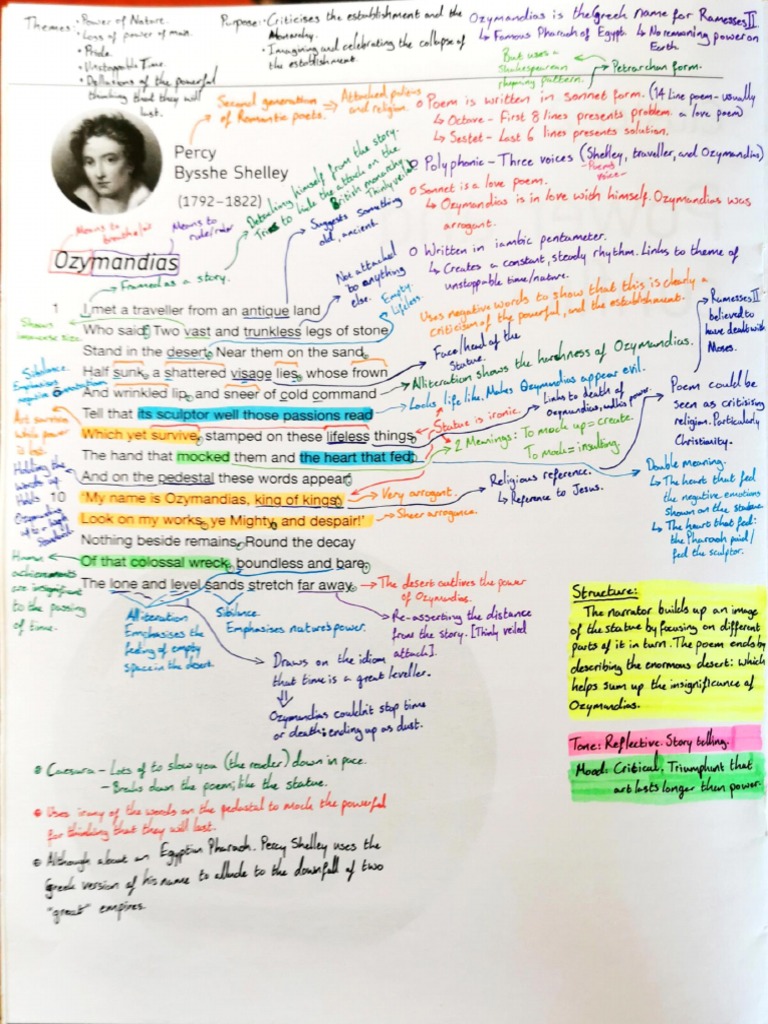 Themes: • Power of Nature.
• Loss of power of man.
• Pride.
• Unstoppable Time.
• Delusions of the powerful
thinking that they will
last.
Purpose: • Criticises the establishment and the
Monarchy.
• Imagining and celebrating the collapse of
the establishment.
Ozymandias is the Greek name for Ramesses II.
↳ Famous Pharaoh of Egypt. ↳ No remaining power on
Earth.
But uses a
Shakespearean
rhyming pattern.
Petrarchan form.
Second generation
of Romantic poets.
→ Attached politics
and religion.
Percy
Bysshe Shelley
(1792–1822)
o Poem is written in sonnet form. (14 line poem - usually
a love poem)
↳ Octave - First 8 lines presents problem.
↳ Sestet - Last 6 lines presents solution.
o Polyphonic - Three voices (Shelley, traveller, and Ozymandias)
- Poems
voice -
o Sonnet is a love poem.
↳ Ozymandias is in love with himself. Ozymandias was
arrogant.
o Written in iambic pentameter.
↳ Creates a constant, steady rhythm. Links to theme of
unstoppable time/nature.
Detaching himself from the story.
Tries to hide the attack on the
British monarchy.
Thinly veiled
Means to
breathe/air
Means to
rule/ruler
Suggests something
old, ancient.
Ozymandias
Framed as a story.
Not attached
to anything
else.
Empty.
Lifeless.
Uses negative words to show that this is clearly a
criticism of the powerful, and the establishment.
Ramesses II
believed to
have dealt with
Moses.
1 I met a traveller from an antique land
Shows
immense size.
Who said: Two vast and trunkless legs of stone
Stand in the desert. Near them on the sand,
Face/head of the
statue.
Half sunk, a shattered visage lies, whose frown
Alliteration shows the harshness of Ozymandias.
Sibilance.
Emphasises
negative connotation
And wrinkled lip, and sneer of cold command
Looks life like. Makes Ozymandias appear evil.
Tell that its sculptor well those passions read
Links to death of
Ozymandias, and his power.
Poem could be
seen as criticising
religion. Particularly
Christianity.
Art survives
while power
is lost.
Which yet survive, stamped on these lifeless things,
Statue is ironic.
The hand that mocked them and the heart that fed;
2 Meanings: To mock up = create.
To mock = insulting.
And on the pedestal these words appear:
Religious reference.
↳ Reference to Jesus.
Double meaning.
↳ The heart that fed
the negative emotions
shown on the statue.
↳ The heart that fed:
the Pharaoh paid/
fed the sculptor.
Holding the
words up.
Holds
Ozymandias
up to a high
10 'My name is Ozymandias, king of kings:
→ Very arrogant.
Look on my works, ye Mighty, and despair!'
→ Sheer arrogance.
Nothing beside remains. Round the decay
Human
achievements
are insignificant
to the passing
of time.
Of that colossal wreck, boundless and bare,
The lone and level sands stretch far away.
→ The desert outlives the power
of Ozymandias.
Alliteration
Emphasises the
feeling of empty
space in the desert.
Sibilance.
Emphasises nature's power.
Re-asserting the distance
from the story. [Thinly veiled
attack].
Draws on the idiom
that time is a great leveller.
Ozymandias couldn't stop time
or death: ending up as dust.
Structure:
The narrator builds up an image
of the statue by focusing on different
parts of it in turn. The poem ends by
describing the enormous desert: which
helps sum up the insignificance of
Ozymandias.
Tone: Reflective. Story telling.
Mood: Critical. Triumphant that
art lasts longer then power.
• Caesura - Lots of to slow you (the reader) down in pace.
- Breaks down the poem; like the statue.
• Uses irony of the words on the pedestal to mock the powerful
for thinking that they will last.
• Although about an Egyptian Pharaoh. Percy Shelley uses the
Greek version of his name to allude to the downfall of two
"great" empires.